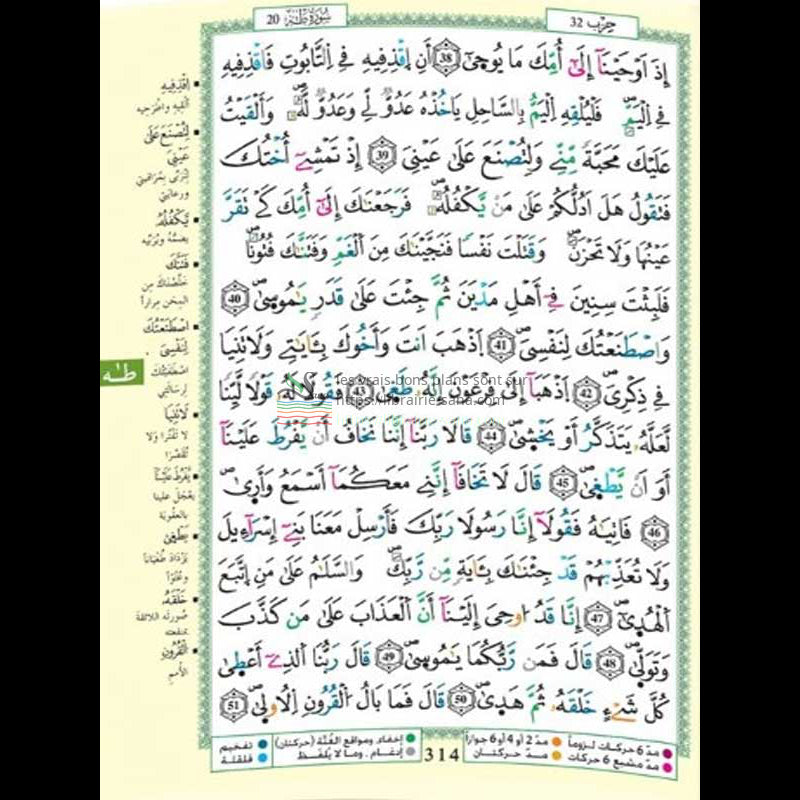 حزب 32
سورة طه 20
إِذَ اَوْحَيْنَآ إِلَىٰٓ أُمِّكَ مَا يُوحَىٰٓ 38 أَنِ اِقْذِفِيهِ فِے اِلتَّابُوتِ فَاقْذِفِيهِ
فِے اِلْيَمِّ فَلْيُلْقِهِ اِلْيَمُّ بِالسَّاحِلِ يَاخُذْهُ عَدُوٌّ لِّے وَعَدُوٌّ لَّهُۥ وَأَلْقَيْتُ
عَلَيْكَ مَحَبَّةً مِّنِّے وَلِتُصْنَعَ عَلَىٰ عَيْنِيَ 39 إِذْ تَمْشِےٓ أُخْتُكَ
فَتَقُولُ هَلَ اَدُلُّكُمْ عَلَىٰ مَنْ يَّكْفُلُهُۥ فَرَجَعْنَٰكَ إِلَىٰٓ أُمِّكَ كَےْ تَقَرَّ
عَيْنُهَا وَلَا تَحْزَنَ وَقَتَلْتَ نَفْسًا فَنَجَّيْنَٰكَ مِنَ اَلْغَمِّ وَفَتَنَّٰكَ فُتُونًا
فَلَبِثْتَ سِنِينَ فِےٓ أَهْلِ مَدْيَنَ ثُمَّ جِئْتَ عَلَىٰ قَدَرٍ يَٰمُوسَىٰ 40
وَاصْطَنَعْتُكَ لِنَفْسِيَ 41 اَذْهَبَ اَنتَ وَأَخُوكَ بِـَٔايَٰتِے وَلَا تَنِيَا
فِے ذِكْرِيَ 42 اَذْهَبَآ إِلَىٰ فِرْعَوْنَ إِنَّهُۥ طَغَىٰ 43 فَقُولَا لَهُۥ قَوْلًا لَّيِّنًا
لَّعَلَّهُۥ يَتَذَكَّرُ أَوْ يَخْشَىٰ 44 قَالَا رَبَّنَآ إِنَّنَا نَخَافُ أَنْ يَّفْرُطَ عَلَيْنَآ
أَوَ اَنْ يَّطْغَىٰ 45 قَالَ لَا تَخَافَآ إِنَّنِے مَعَكُمَآ أَسْمَعُ وَأَرَىٰ
46 فَاتِيَٰهُ فَقُولَآ إِنَّا رَسُولَا رَبِّكَ فَأَرْسِلْ مَعَنَا بَنِےٓ إِسْرَآءِيلَ
وَلَا تُعَذِّبْهُمْ قَدْ جِئْنَٰكَ بِـَٔايَةٍ مِّن رَّبِّكَ وَالسَّلَٰمُ عَلَىٰ مَنِ اِتَّبَعَ
اَلْهُدَىٰٓ 47 إِنَّا قَدُ اُوحِيَ إِلَيْنَآ أَنَّ اَلْعَذَابَ عَلَىٰ مَن كَذَّبَ
وَتَوَلَّىٰ 48 قَالَ فَمَن رَّبُّكُمَا يَٰمُوسَىٰ 49 قَالَ رَبُّنَا اَلذِےٓ أَعْطَىٰ
كُلَّ شَےْءٍ خَلْقَهُۥ ثُمَّ هَدَىٰ 50 قَالَ فَمَا بَالُ اُلْقُرُونِ اِلُاولَىٰ 51
اِقْذِفِيهِ
ألقيه واطرحيه
لِتُصْنَعَ عَلَىٰ
عَيْنِيَ
لِتُرَبَّى بمُراقبتي
ورعايتي
يَّكْفُلُهُ
يضمُّهُ ويُربّيه
فَتَنَّٰكَ
خلّصناك من
المِحَن مِراراً
اصْطَنَعْتُكَ
لِنَفْسِيَ
اصْطَفَيْتُكَ
لرسالتي
لَا تَنِيَا
لا تَفْتُرا وَلا
تُقَصِّرا
يَّفْرُطَ عَلَيْنَآ
يَعْجَلَ علينا
بالعقوبة
يَطْغَىٰ
يَزْدادَ طُغْياناً
وعُتُوّاً
خَلْقَهُ
صُورته اللائقة
بمنفعته
اَلْقُرُونِ
الأُمم
طه
les vrais bons plans sont sur
https://librairie-sana.com
مدّ 6 حركات لزوماً
مدّ 2 أو 4 أو 6 جوازاً
إخفاء، ومواقع الغُنَّة (حركتان)
تفخيم
مدّ مشبع 6 حركات
مدّ حركتان
إدغام، وما لا يُلفَظ
قلقلة
314